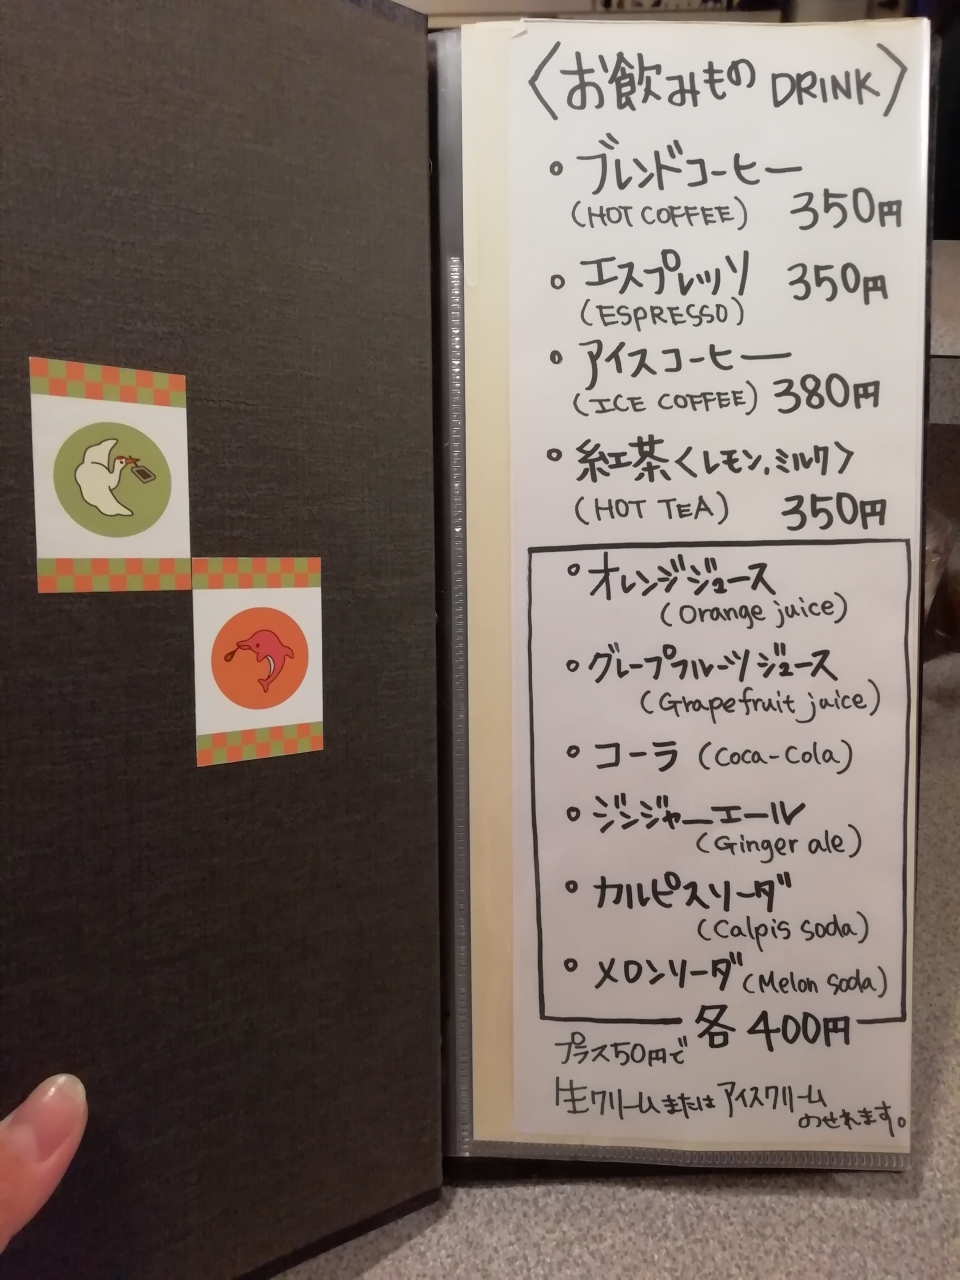 〈お飲みもの DRINK〉
・ブレンドコーヒー
(HOT COFFEE) 350円
・エスプレッソ 350円
(ESPRESSO)
・アイスコーヒー
(ICE COFFEE) 380円
・紅茶〈レモン,ミルク〉
(HOT TEA) 350円
・オレンジジュース
(Orange juice)
・グレープフルーツジュース
(Grapefruit juice)
・コーラ (Coca-Cola)
・ジンジャーエール
(Ginger ale)
・カルピスソーダ
(Calpis soda)
・メロンソーダ(Melon soda)
各400円
プラス50円で
生クリームまたはアイスクリーム
のせれます。